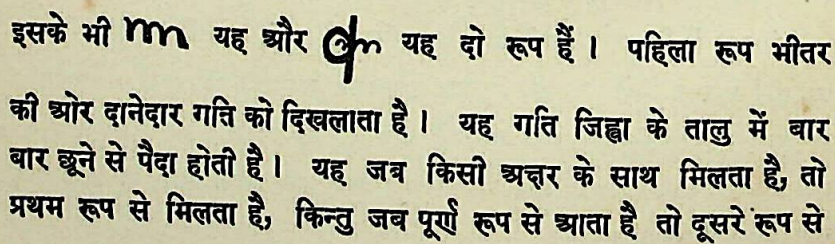 इसके भी यह और यह दो रूप हैं । पहिला रूप भीतर
की ओर दानेदार गति को दिखलाता है । यह गति जिह्वा के तालु में बार
बार छूने से पैदा होती है । यह जब किसी अक्षर के साथ मिलता है, तो
प्रथम रूप से मिलता है, किन्तु जब पूर्ण रूप से आता है तो दूसरे रूप से